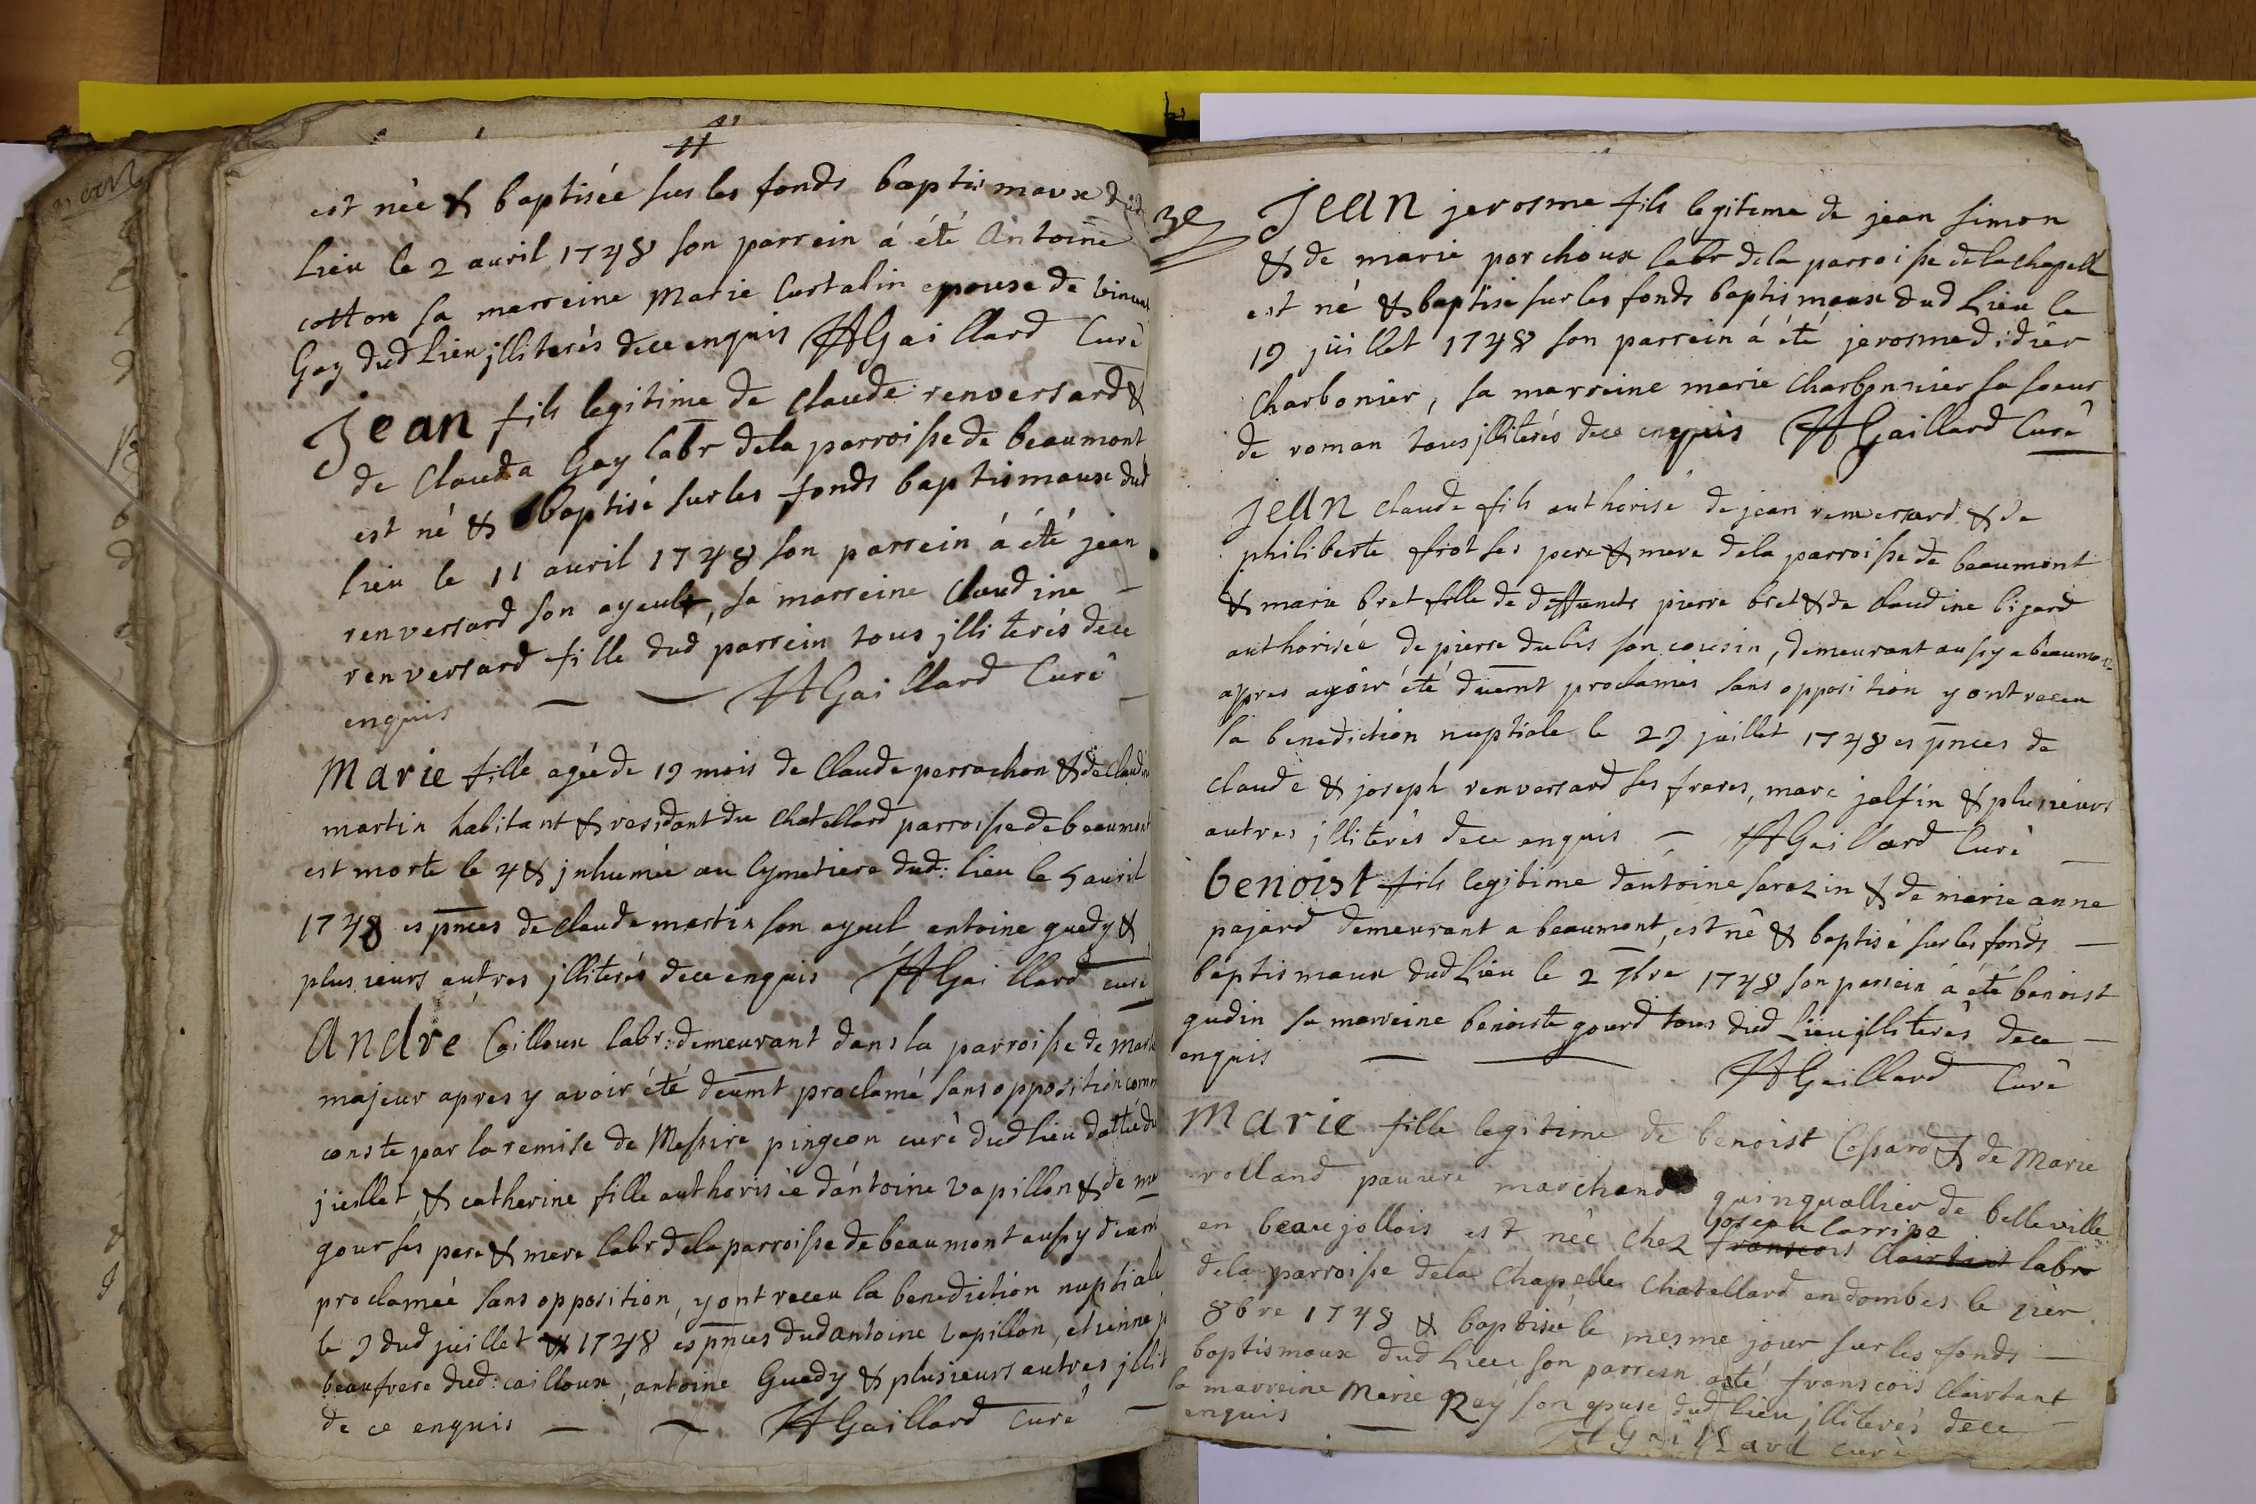 est née & baptisée sur les fonds baptismaux dud
Lieu le 2 auril 1748 son parrein á été Antoine
cotton sa marreine Marie Curtalin epouse de vincent
Gay dud Lieu jlliterés dece enquis HGaillard Curé
Jean fils legitime de claude renversard &
de Clauda Gay labr dela parroisse de beaumont
est né & baptisé sur les fonds baptismaux dud
lieu le 11 auril 1748 son parrein á été jean
renversard son ayeul, sa marreine claudine
renversard fille dud parrein tous jlliterés dece
enquis HGaillard Curé
Marie fille agée de 19 mois de Claude perrachon & de Claudine
martin habitant & residant du Chatellard parroisse de beaumont
est morte le 4 & jnhumée au Cymetiere dud: lieu le 5 auril
1748 es pnces de claude martin son ayeul antoine guedy &
plusieurs autres jlliterés dece enquis HGaillard curé
Andre Cailloux labr: demeurant dans la parroisse de
majeur apres y avoir été deumt proclamé sans opposition comm
conste par la remise de Messire pingeon curé dud lieu dattée du
juillet, & catherine fille authorisée d'antoine Vapillon & de
gour ses pere & mere labr dela parroisse de beaumont aussy deumt
proclamée sans opposition, y ont receu la benediction nuptiale
le 9 dud juillet 1748 és pnces dud antoine Vapillon, etienne
beaufrere dud: cailloux, antoine Guedy & plusieurs autres jllit
de ce enquis HGaillard Curé
Jean jerosme fils legitime de jean simon
& de marie porchoux labr dela parroisse dela chapelle
est né & baptisé sur les fonds baptismaux dud Lieu le
19 juillet 1748 son parrein á été jerosme didier
Charbonier, sa marreine marie Charbonnier sa soeur
de roman tous jlliterés dece enquis HGaillard Curé
Jean claude fils authorisé de jean renversard & de
philiberte friot ses pere & mere dela parroisse de beaumont
& marie bret fille de deffuncts pierre bret & de claudine bigard
authorisée de pierre dubis son cousin, demeurant aussy a beaumont
apres avoir été duemt proclamés sans opposition y ont receu
la benediction nuptiale le 29 juillet 1748 es pnces de
claude & joseph renversard ses freres, marc jolfin & plusieurs
autres jlliterés dece enquis HGaillard Curé
benoist fils legitime dantoine sarazin & de marie anne
pajard demeurant a beaumont, est né & baptisé sur les fonds
baptismaux dud Lieu le 2 7bre 1748 son parrein á été benoist
gudin sa marreine benoiste gourd tous dud Lieu jlliterés dece
enquis
HGaillard Curé
Marie fille legitime de benoist Cossard & de Marie
rolland pauvre marchand quinquallier de belleville
joseph Carripe
en beaujollois est née chez francois Clairtant labr
dela parroisse dela Chapelle Chatellard en dombes le 1ier
8bre 1748 & baptisée le mesme jour sur les fonds
baptismaux dud Lieu son parrein a été franscois Clairtant
la marreine Marie Rey son epuse dud Lieu jlliterés dece
enquis
HGaillard curé